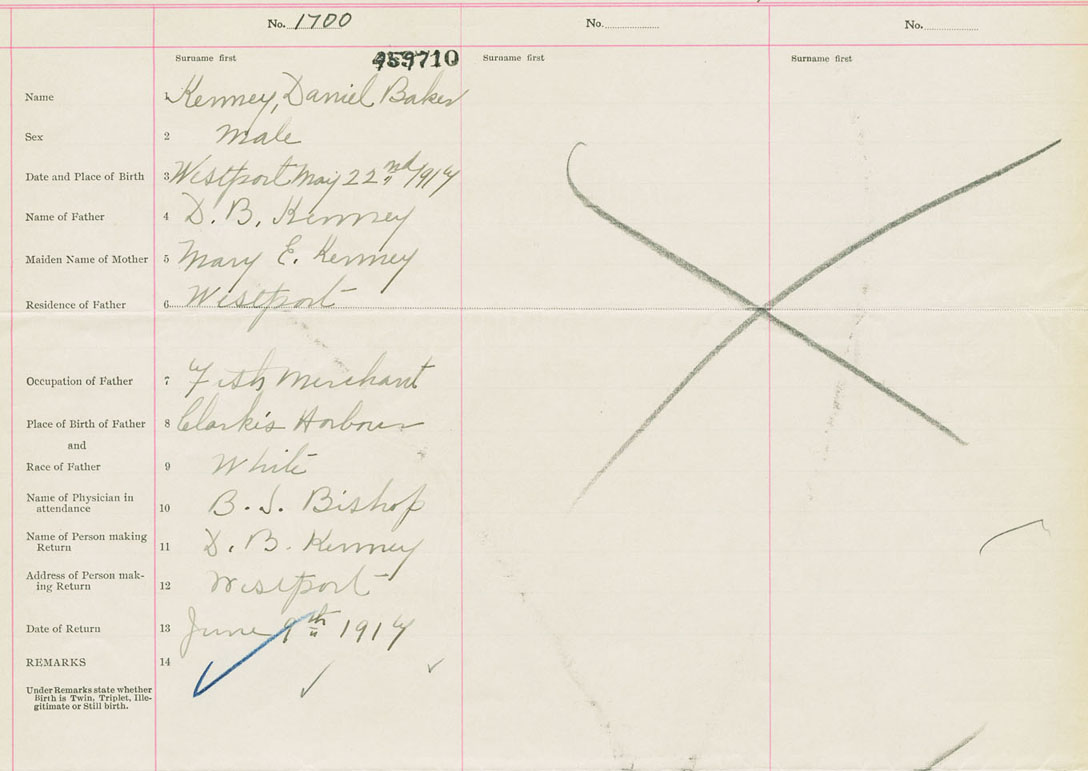 No. 1700 No. No.
Surname first 959710 Surname first Surname first
Name 1 Kenney, Daniel Baker
Sex 2 Male
Date and Place of Birth 3 Westport May 22nd 1917
Name of Father 4 D. B. Kenney
Maiden Name of Mother 5 Mary E. Kenney
Residence of Father 6 Westport
Occupation of Father 7 Fish Merchant
Place of Birth of Father 8 Clark's Harbour
and
Race of Father 9 White
Name of Physician in
attendance 10 B. S. Bishop
Name of Person making
Return 11 D. B. Kenney
Address of Person mak-
ing Return 12 Westport
Date of Return 13 June 9th 1917
REMARKS 14
Under Remarks state whether
Birth is Twin, Triplet, Ille-
gitimate or Still birth.